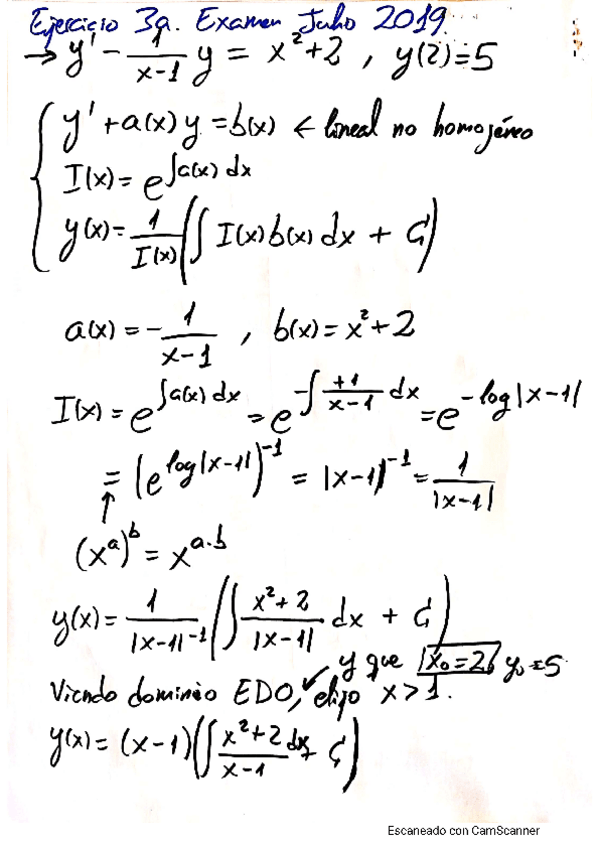 Ejercicio 3a. Examen Julio 2019.
→ y' - \frac{1}{x-1} y = x² + 2 , y(2) = 5
{ y' + a(x) y = b(x) ← lineal no homogéneo
I(x) = e^{∫a(x) dx}
y(x) = \frac{1}{I(x)} (∫ I(x) b(x) dx + C₁)
a(x) = - \frac{1}{x-1} , b(x) = x² + 2
I(x) = e^{∫a(x) dx} = e^{-∫ \frac{+1}{x-1} dx} = e^{-log|x-1|}
= (e^{log|x-1|})^{-1} = |x-1|^{-1} = \frac{1}{|x-1|}
↑
(x^a)^b = x^{a·b}
y(x) = \frac{1}{|x-1|^{-1}} (∫ \frac{x²+2}{|x-1|} dx + C₁)
y que x₀=2, y₀=5
Viendo dominio EDO, elijo x > 1.
y(x) = (x-1) (∫ \frac{x²+2}{x-1} dx + C₁)
Escaneado con CamScanner